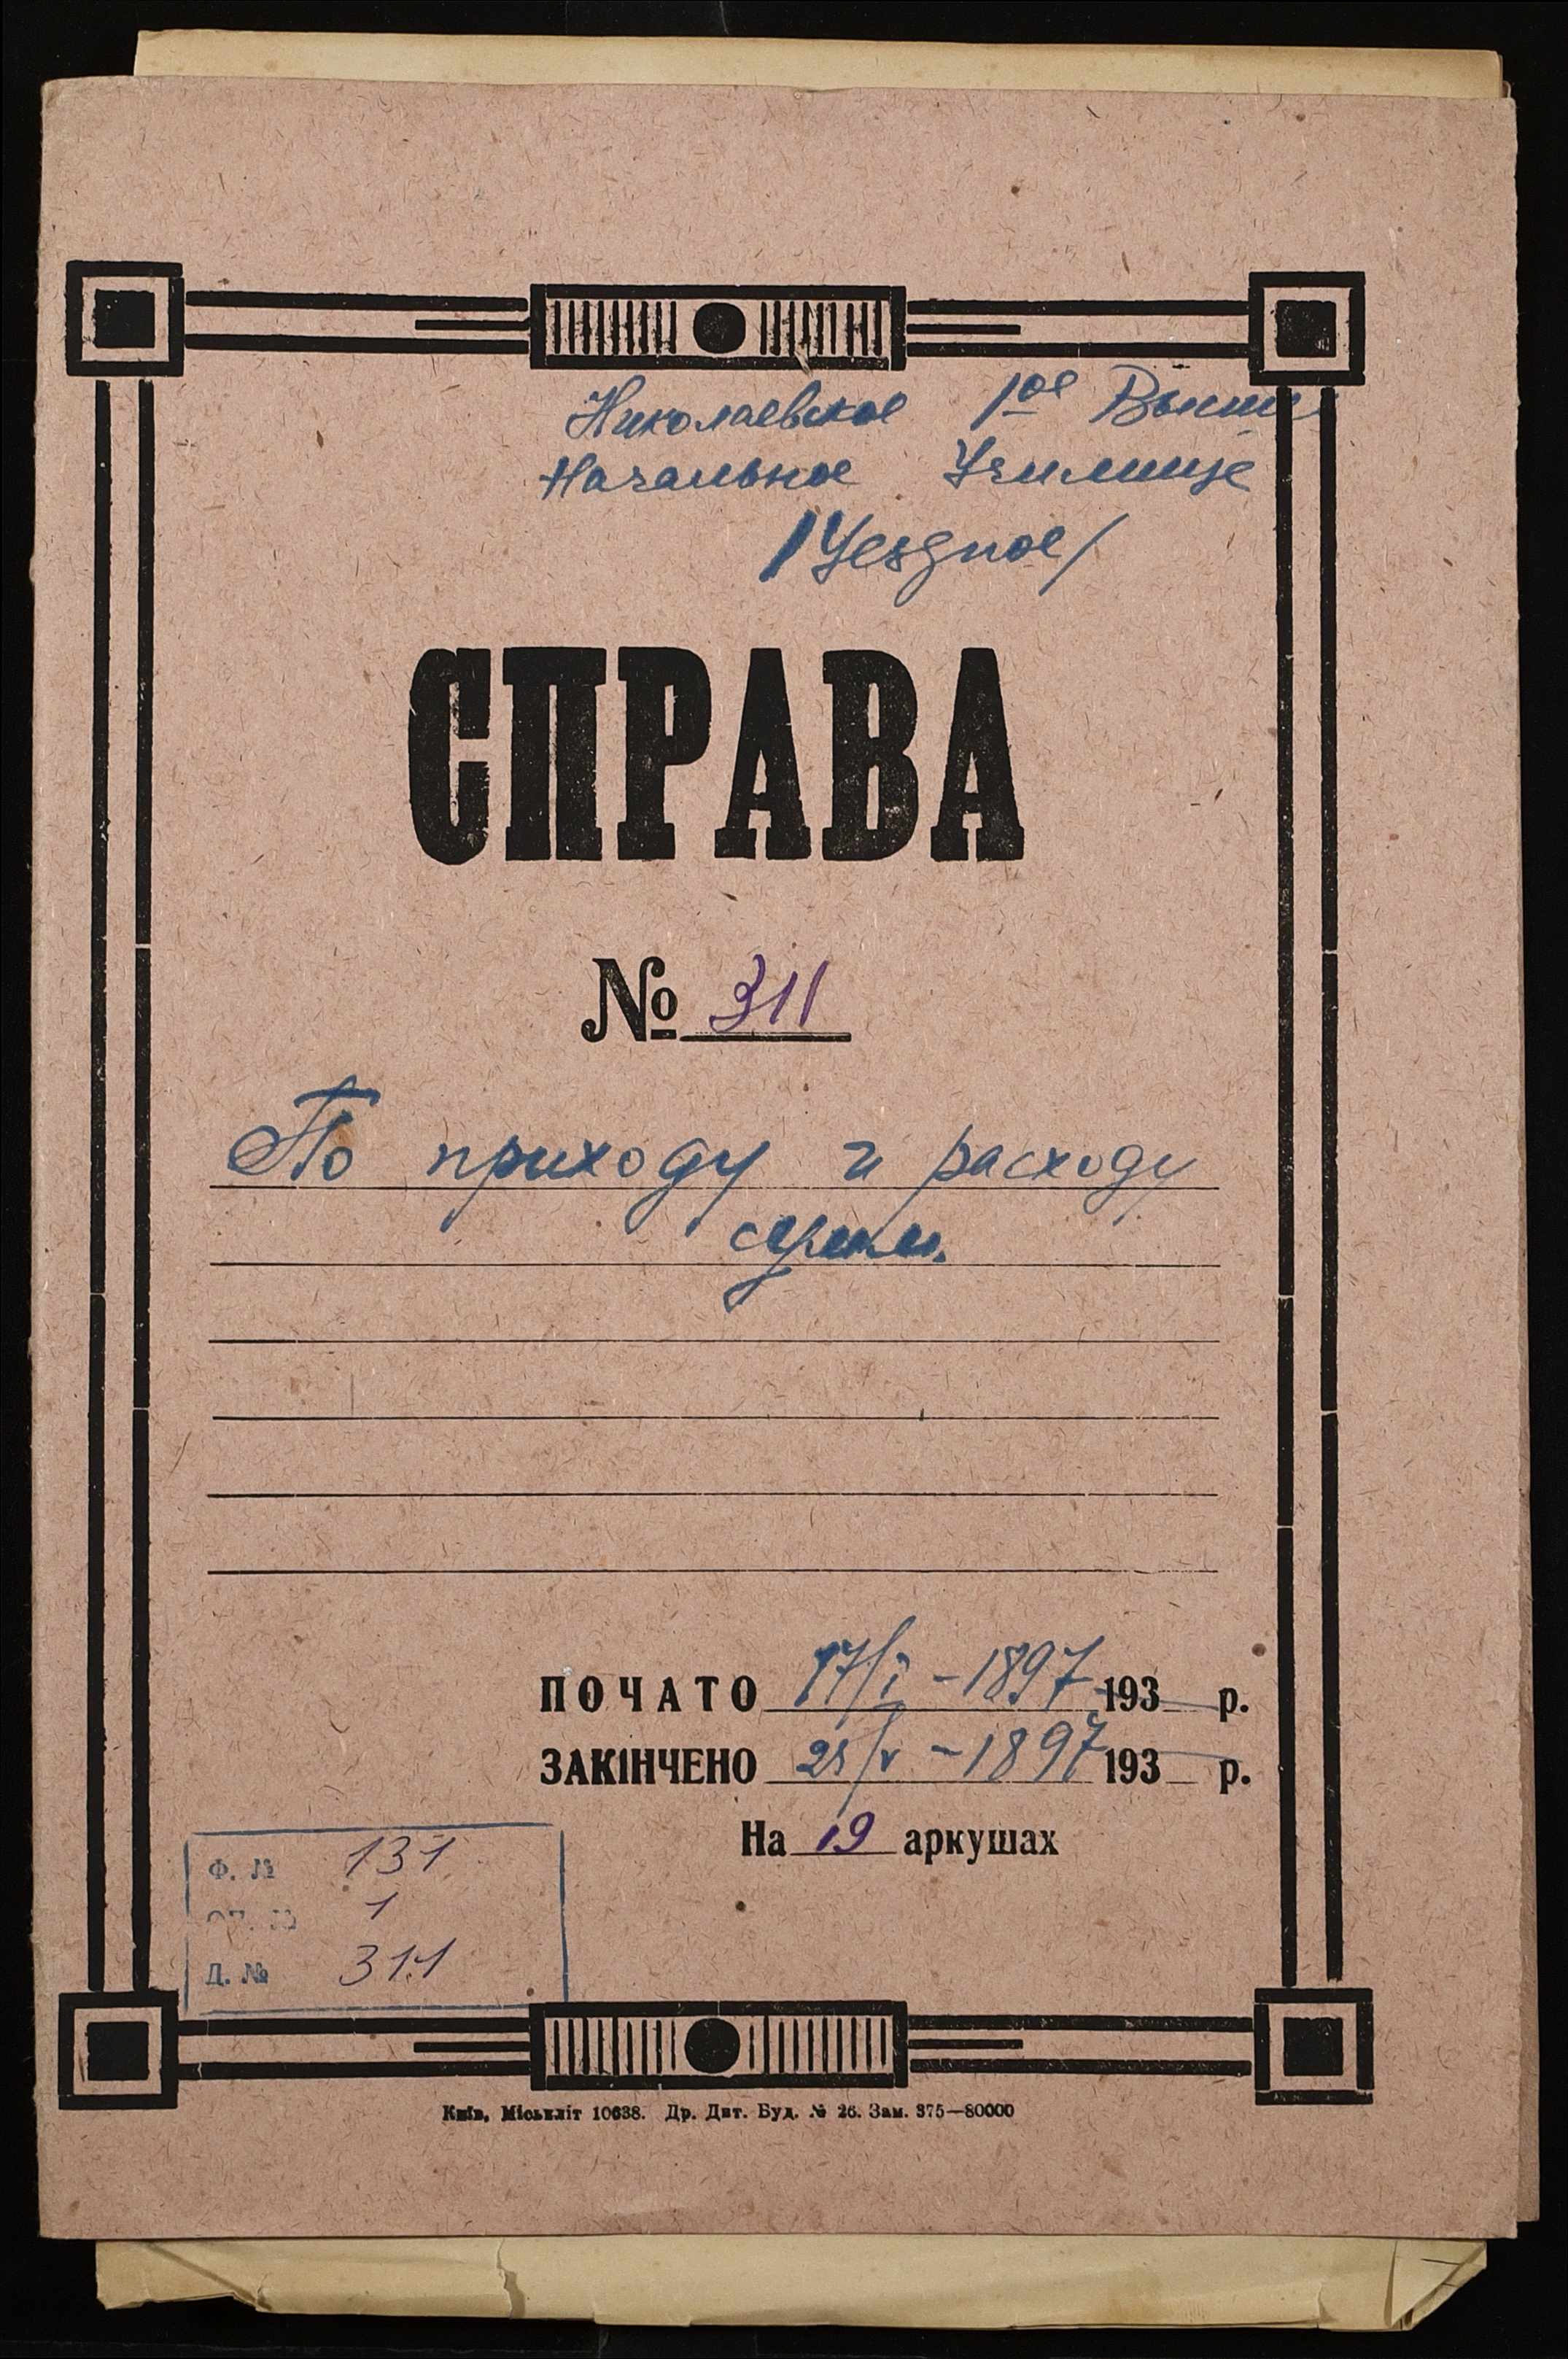 Николаевское 1ое Высш
Начальное Училище
/Уездное/
СПРАВА
№ 311
По приходу и расходу
сумм.
ПОЧАТО 17/I - 1897 193 р.
ЗАКІНЧЕНО 25/V - 1897 193 р.
На 19 аркушах
Ф. № 131
ОП. № 1
Д. № 311
Київ, Міськліт 10638. Др. Двт. Буд. № 26. Зам. 375—80000